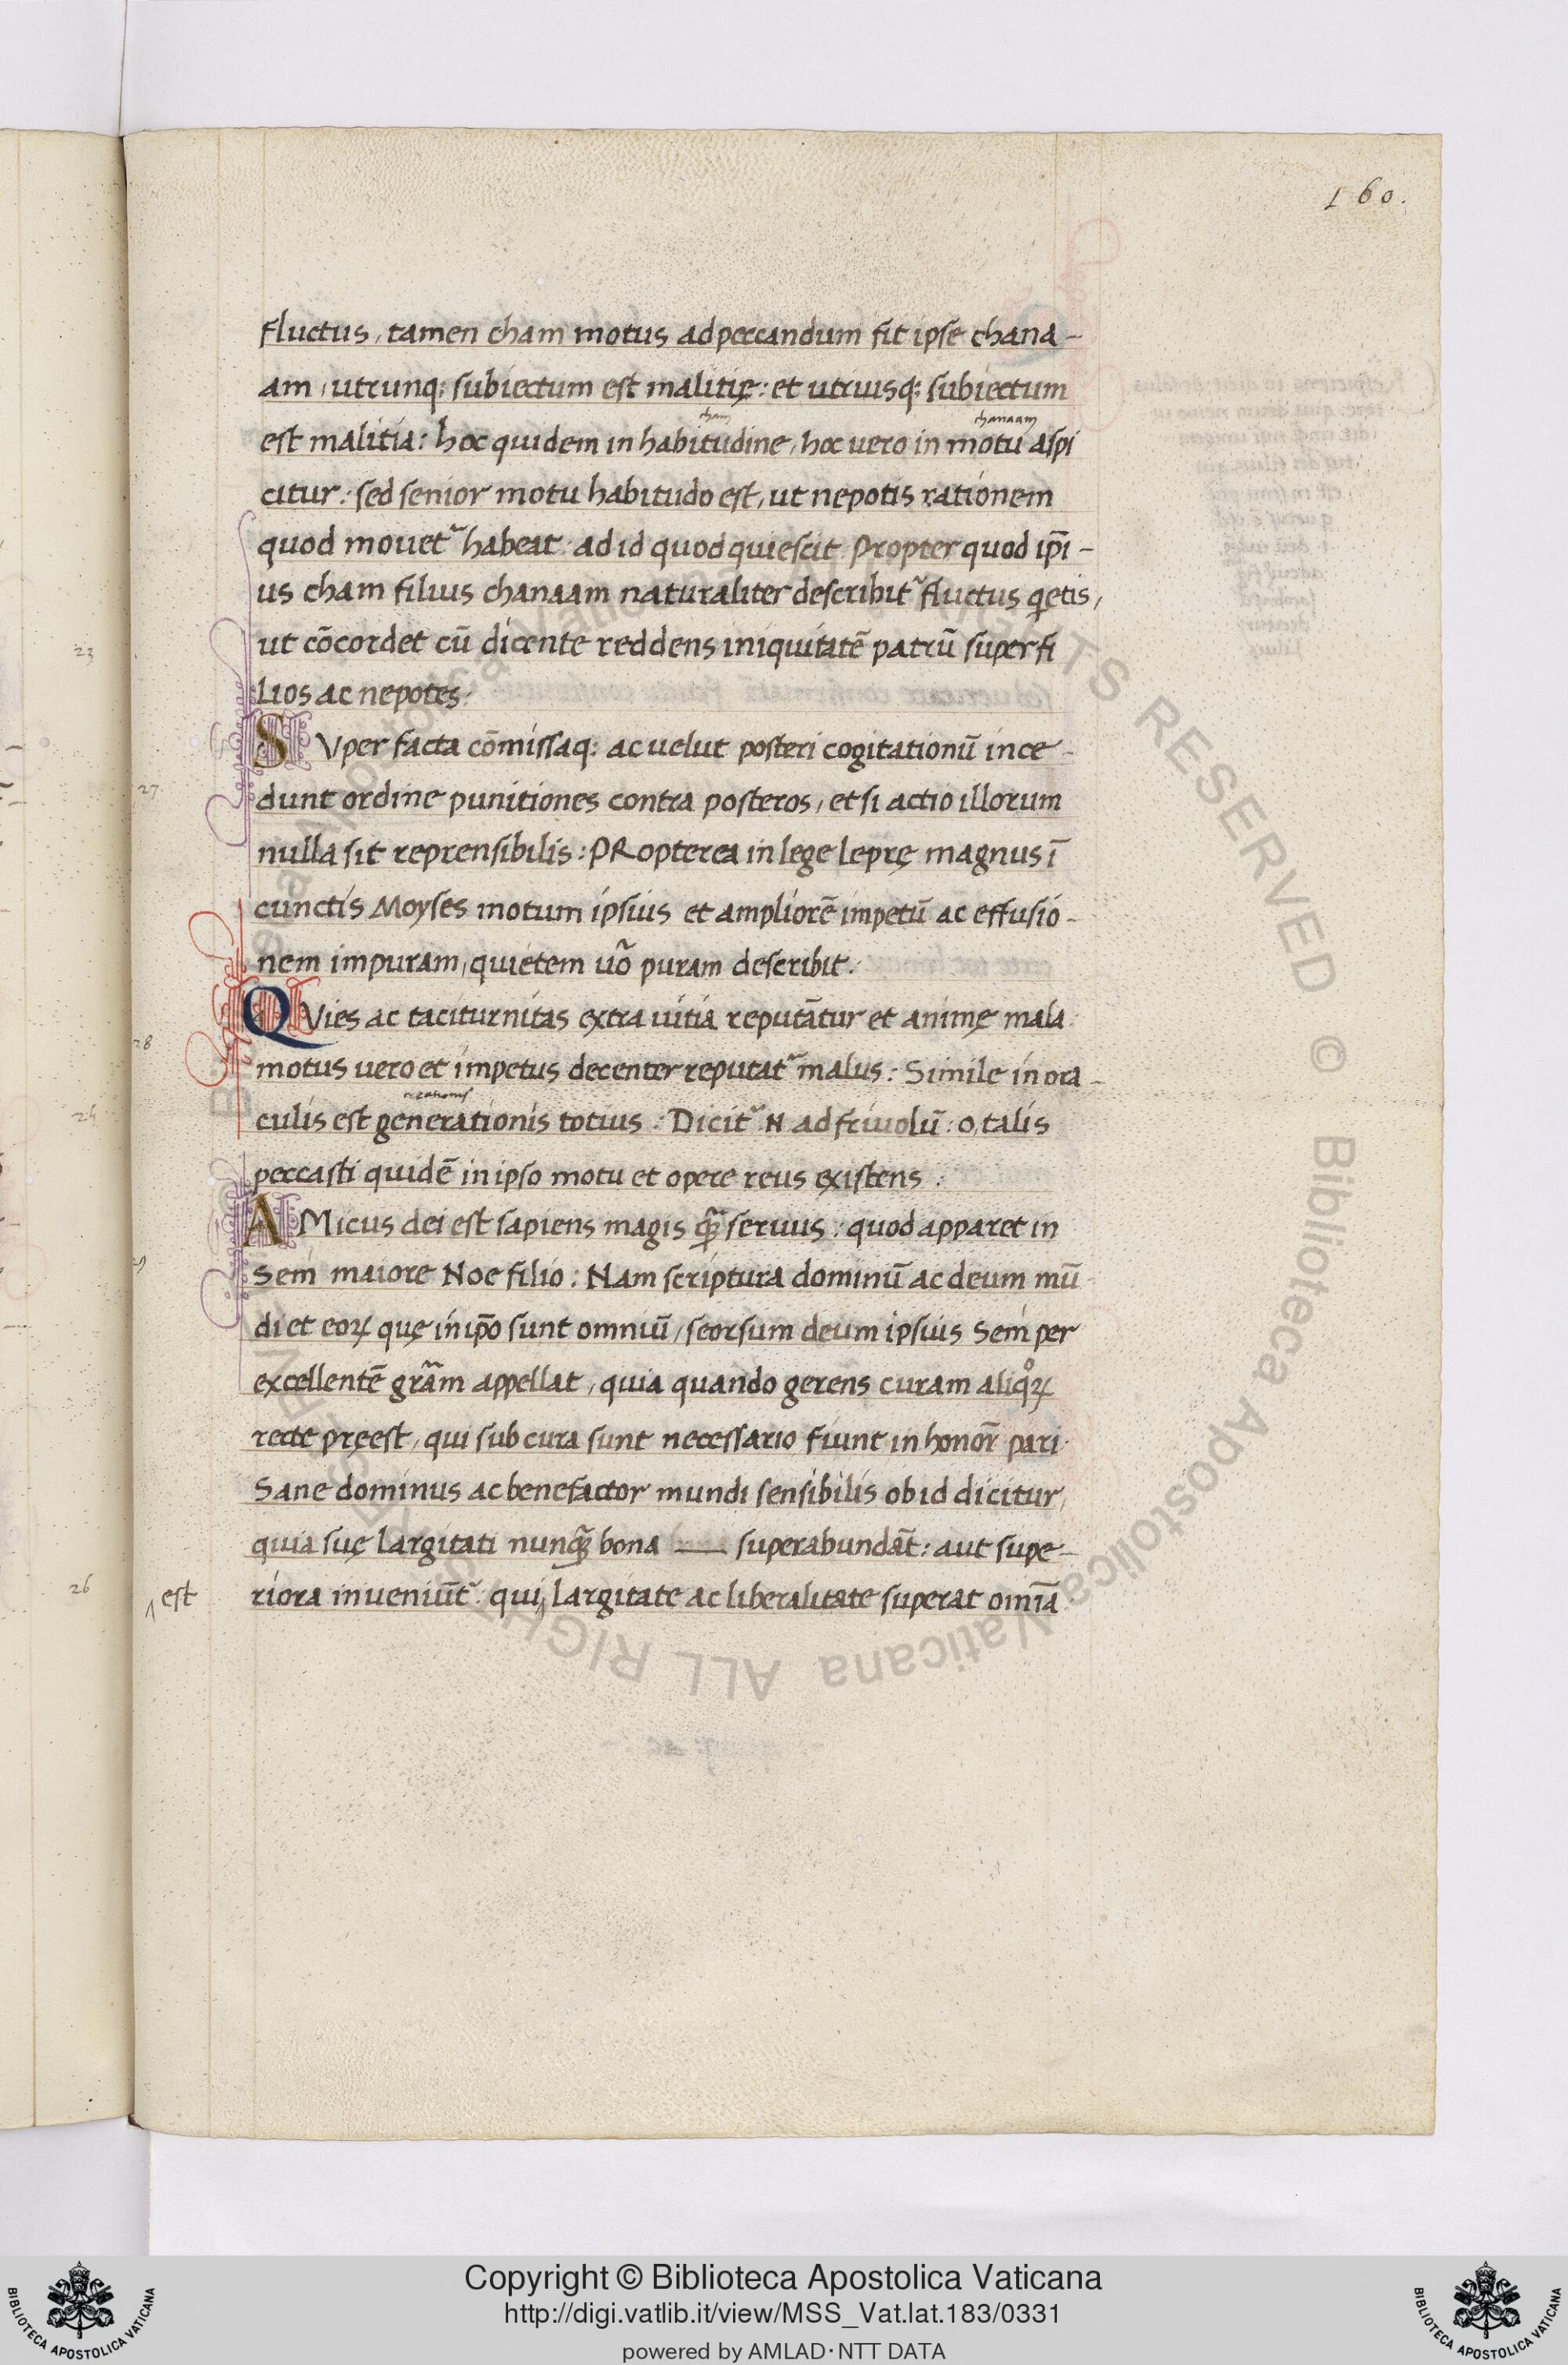 160.
fluctus, tamen cham motus ad peccandum fit ipse chana-
am, utrunq; subiectum est malitię: et utriusq; subiectum
cham chanaam
est malitia: hoc quidem in habitudine, hoc uero in motu aspi
citur: sed senior motu habitudo est, ut nepotis rationem
quod mouet᷑ habeat ad id quod quiescit. Propter quod ip̄i-
us cham filius chanaam naturaliter describit᷑ fluctus q̇etis,
23
ut cōcordet cū dicente reddens iniquitatē patrū super fi
lios ac nepotes.
SVper facta cōmissaq; ac uelut posteri cogitationū ince-
27
dunt ordine punitiones contra posteros, et si actio illorum
nulla sit reprensibilis: PRopterea in lege leprę magnus ī
cunctis Moyses motum ipsius et ampliorē impetū ac effusio-
nem impuram, quietem uo᷑ puram describit.
QVies ac taciturnitas extra uitia reputātur et animę mala
28
motus uero et impetus decenter reputat᷑ malus: Simile in ora-
rerationis
24
culis est generationis totius: Dicit᷑ N ad friuolū: o, talis
peccasti quidē in ipso motu et opere reus existens:
AMicus dei est sapiens magis q̃ꝫ seruus: quod apparet in
29
Sem maiore Noe filio: Nam scriptura dominū ac deum mū
di et eoꝝ quę in ip̄o sunt omniū, seorsum deum ipsius Sem per
excellentē grãm appellat, quia quando gerens curam aliqͦꝝ
recte pręest, qui sub cura sunt necessario fiunt in honor̄ pari
Sane dominus ac benefactor mundi sensibilis ob id dicitur,
quia suę largitati nunq̃ꝫ bona superabundāt: aut supe-
26
est
riora inueniūt᷑ qui largitate ac liberalitate superat omīa
Copyright © Biblioteca Apostolica Vaticana
http://digi.vatlib.it/view/MSS_Vat.lat.183/0331
powered by AMLAD·NTT DATA
BIBLIOTECA APOSTOLICA VATICANA
BIBLIOTECA APOSTOLICA VATICANA